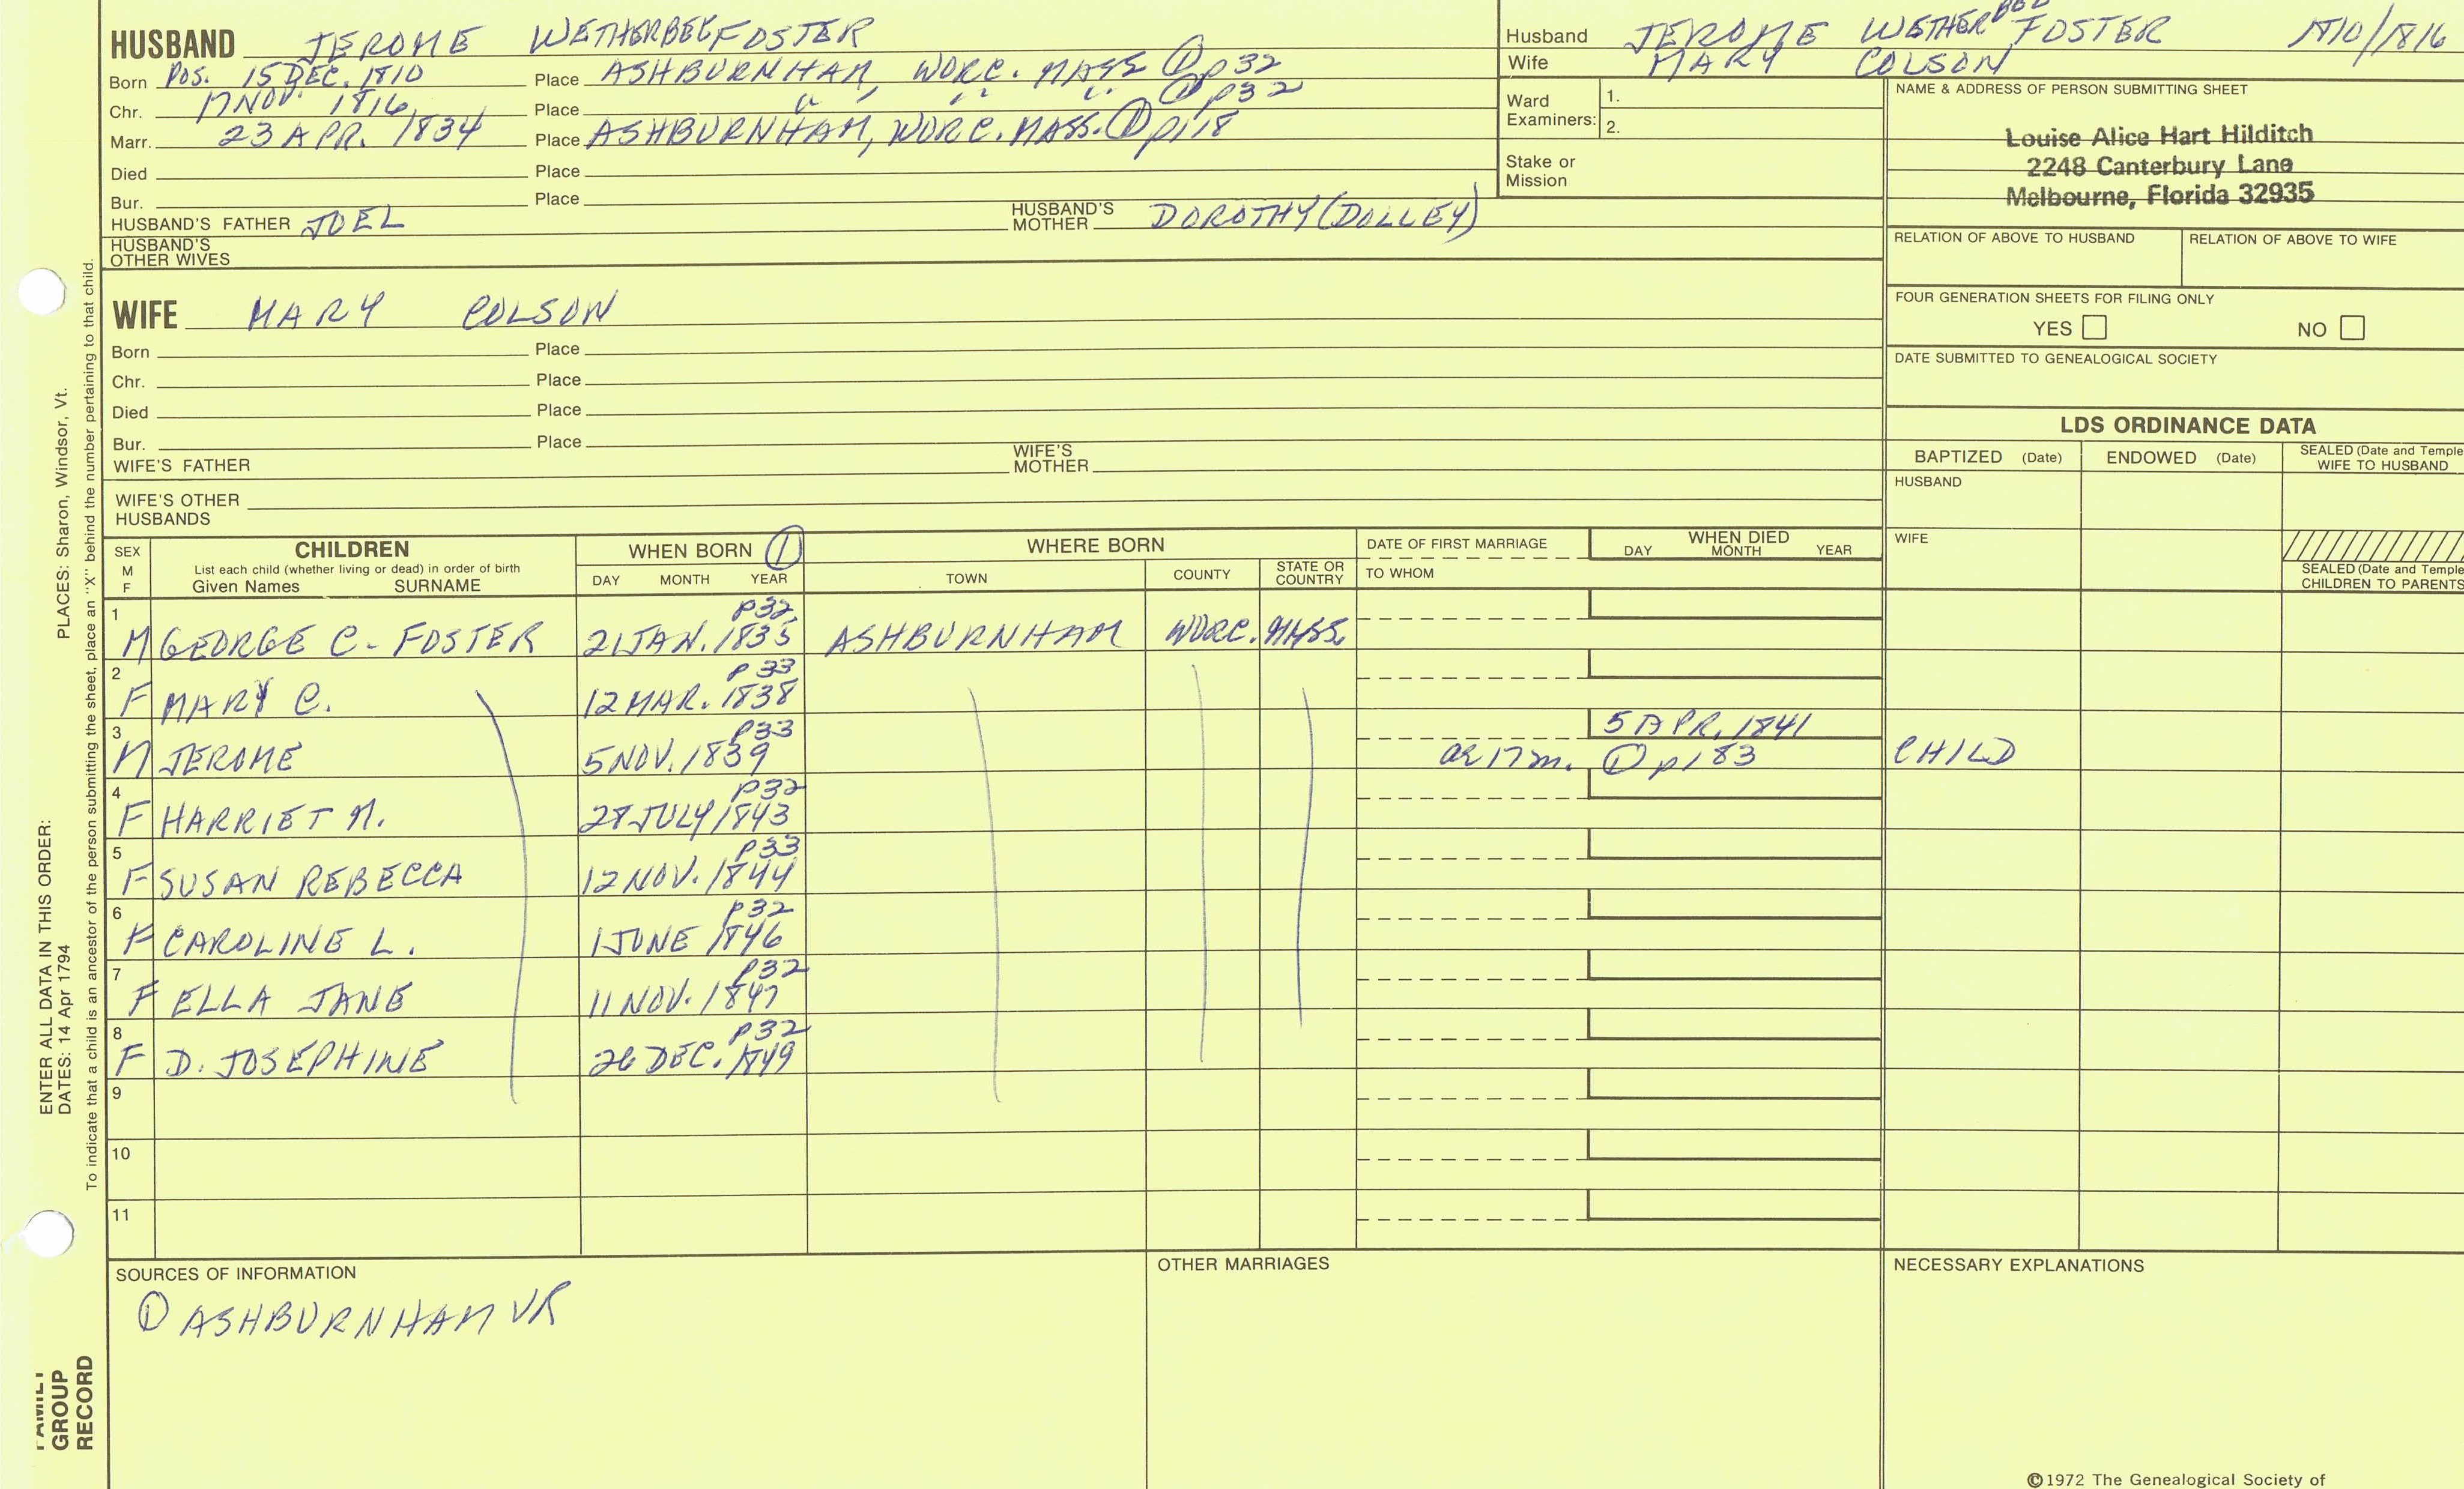 HUSBAND JEROME WETHERBEE FOSTER
Born POS. 15 DEC. 1810 Place ASHBURNHAM, WORC. MASS ① p32
Chr. 17 NOV. 1816 Place " " " " ① p32
Marr. 23 APR. 1834 Place ASHBURNHAM, WORC. MASS. ① p118
Died Place
Bur. Place
HUSBAND'S FATHER JOEL HUSBAND'S MOTHER DOROTHY (DOLLEY)
HUSBAND'S OTHER WIVES
Husband JEROME WETHERBEE FOSTER 1810/1816
Wife MARY COLSON
Ward Examiners: 1.
2.
Stake or Mission
NAME & ADDRESS OF PERSON SUBMITTING SHEET
Louise Alice Hart Hilditch
2248 Canterbury Lane
Melbourne, Florida 32935
RELATION OF ABOVE TO HUSBAND RELATION OF ABOVE TO WIFE
FOUR GENERATION SHEETS FOR FILING ONLY
YES NO
DATE SUBMITTED TO GENEALOGICAL SOCIETY
WIFE MARY COLSON
Born Place
Chr. Place
Died Place
Bur. Place
WIFE'S FATHER WIFE'S MOTHER
WIFE'S OTHER HUSBANDS
LDS ORDINANCE DATA
BAPTIZED (Date) ENDOWED (Date) SEALED (Date and Temple
WIFE TO HUSBAND
HUSBAND
WIFE
SEALED (Date and Temple
CHILDREN TO PARENTS
SEX M F CHILDREN WHEN BORN ① WHERE BORN DATE OF FIRST MARRIAGE WHEN DIED
List each child (whether living or dead) in order of birth
Given Names SURNAME DAY MONTH YEAR TOWN COUNTY STATE OR COUNTRY TO WHOM DAY MONTH YEAR
1 p32
M GEORGE C. FOSTER 21 JAN. 1835 ASHBURNHAM WORC. MASS.
2 p33
F MARY C. 12 MAR. 1838
3 p33 5 APR. 1841
M JEROME 5 NOV. 1839 ae 17 m. ① p183 CHILD
4 p32
F HARRIET M. 28 JULY 1843
5 p33
F SUSAN REBECCA 12 NOV. 1844
6 p32
F CAROLINE L. 1 JUNE 1846
7 p32
F ELLA JANE 11 NOV. 1847
8 p32
F D. JOSEPHINE 26 DEC. 1849
9
10
11
SOURCES OF INFORMATION OTHER MARRIAGES NECESSARY EXPLANATIONS
① ASHBURNHAM VR
©1972 The Genealogical Society of
ENTER ALL DATA IN THIS ORDER:
DATES: 14 Apr 1794 PLACES: Sharon, Windsor, Vt.
To indicate that a child is an ancestor of the person submitting the sheet, place an "X" behind the number pertaining to that child.
FAMILY
GROUP
RECORD